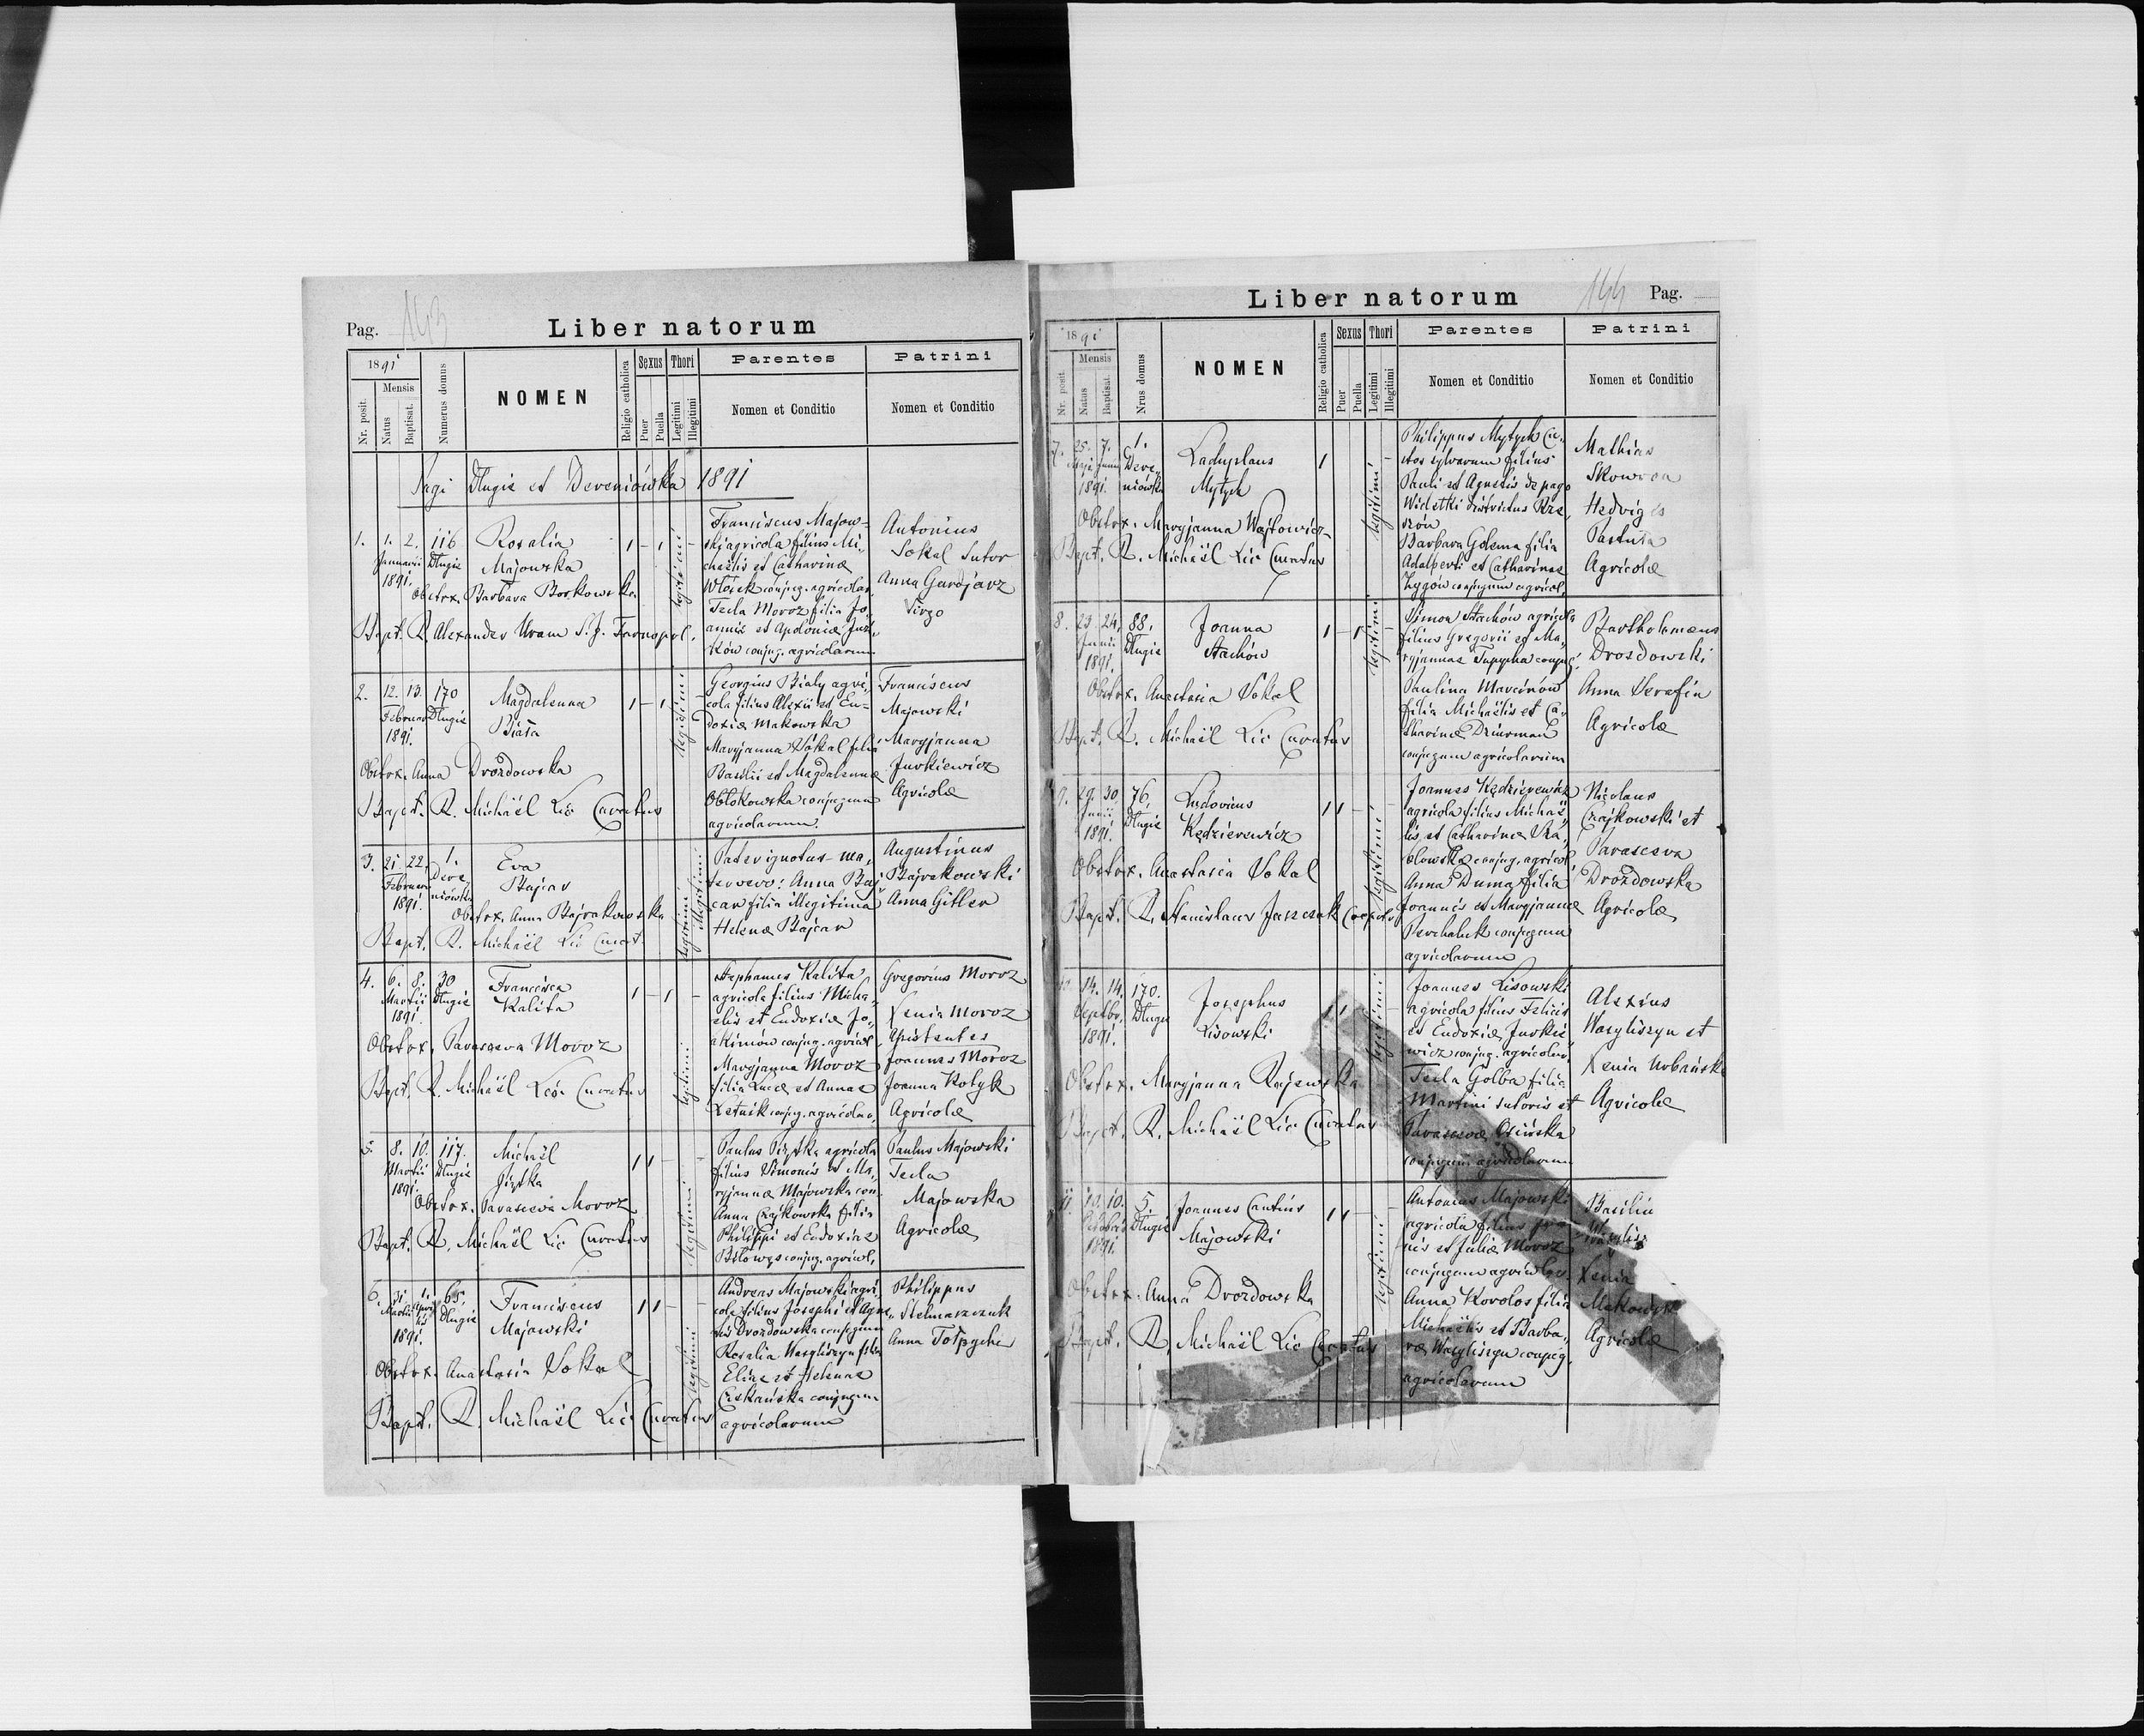 Pag. 143
Liber natorum
1891
Mensis
Nr. posit.
Natus
Baptisat.
Numerus domus
NOMEN
Religio catholica
Sexus
Puer
Puella
Thori
Legitimi
Illegitimi
Parentes
Nomen et Conditio
Patrini
Nomen et Conditio
Pagi Długie et Dereniówka 1891
1. 1. 2. 116
Januarii Długie
1891.
Rosalia
Majowska
Obstrx. Barbara Borkowska
Bapt. R. Alexander Mram S. J. Tarnopol.
legitimi
Franciscus Majow-
ski agricola filius Mi-
chaëlis et Catharinæ
Włosek conjug. agricolar.
Tecla Moroz filia Jo-
annis et Apoloniæ
ków conjug. agricolarum
Antonius
Sokal Sutor
Anna Gardjarz
Virgo
2. 12. 13. 170
Februar. Długie
1891.
Magdalenna
Biała
Obstrx. Anna Drozdowska
Bapt. R. Michaël Lic Curatus
legitimi
Georgius Biały agri-
cola filius Alexii et Eu-
doxiæ Makowska
Maryjanna Sokal filia
Basilii et Magdalennæ
Obłokowska conjugum
agricolarum.
Franciscus
Majowski
Maryjanna
Jurkiewicz
Agricolæ
3. 21. 22. 1.
Februar. Dere-
1891. niówka
Eva
Bajcar
Obstrx. Anna Bajrakowska
Bapt. R. Michaël Lic Curat.
illegitimi
Pater ignotus - ma-
ter vero: Anna Baj-
car filia illegitima
Helenæ Bajcar
Augustinus
Bajrakowski
Anna Gitler
4. 6. 8. 30
Martii Długie
1891.
Francisca
Kalita
Obstrx. Parasceva Moroz
Bapt. R. Michaël Lic Curatus
legitimi
Stephanus Kalita
agricola filius Micha-
elis et Eudoxiæ Jo-
akimów conjug. agricol.
Maryjanna Moroz
filia Lucæ et Annæ
Letnik conjug. agricolar.
Gregorius Moroz
Xenia Moroz
Assistentes
Joannes Moroz
Joanna Kotyk
Agricolæ
5. 8. 10. 117.
Martii Długie
1891.
Michaël
Piętka
Obstrx. Parasceva Moroz
Bapt. R. Michaël Lic Curatus
legitimi
Paulus Piętka agricola
filius Simonis et Ma-
ryjannæ Majowska con.
Anna Czajkowska filia
Philippi et Eudoxiæ
Biłowąs conjug. agricol.
Paulus Majowski
Tecla
Majowska
Agricolæ
6. 31. 1. 65.
Martii Aprilis Długie
1891.
Franciscus
Majowski
Obstrx. Anastasia Sokal
Bapt. R. Michaël Lic Curatus
legitimi
Andreas Majowski agri-
cola filius Josephi et Agne-
tis Drozdowska conjugum
Rosalia Wasyliszyn filia
Eliæ et Helenæ
conjugum
agricolarum
Philippus
Stelmaszczuk
Anna Tołpycha
Liber natorum
144 Pag.
1891
Mensis
Nr. posit.
Natus
Baptisat.
Nrus domus
NOMEN
Religio catholica
Sexus
Puer
Puella
Thori
Legitimi
Illegitimi
Parentes
Nomen et Conditio
Patrini
Nomen et Conditio
7. 25. 7. 1.
Maji Junii Dere-
1891. niówka
Ladyslaus
Mytych
Obstrx. Maryjanna Wojtowicz
Bapt. R. Michaël Lic Curatus
legitimi
Philippus Mytych Cu-
stos sylvarum filius
Pauli et Agnetis de pago
Widełki districtus Rze-
szów
Barbara Golema filia
Adalberti et Catharinæ
Zygów conjugum agricol.
Mathias
Skowron
Hedvigis
Pastula
Agricolæ
8. 23. 24. 88.
Junii Długie
1891.
Joanna
Stachów
Obstrx. Anastasia Sokal
Bapt. R. Michaël Lic Curatus
legitimi
Simon Stachów agricola
filius Gregorii et Ma-
ryjannæ Tupycha conjug.
Paulina Marcinów
filia Michaëlis et Ca-
tharinæ Dziurman
conjugum agricolarum
Bartholomæus
Drozdowski
Anna Serafin
Agricolæ
9. 29. 30. 76.
Junii Długie
1891.
Ludovicus
Kędzierewicz
Obstrx. Anastasia Sokal
Bapt. R. Stanislaus Juszczak Cooper.
legitimi
Joannes Kędzierewicz
agricola filius Michaë-
lis et Catharinæ
conjug. agricol.
Anna Duma filia
Joannis et Maryjannæ
Perchaluk conjugum
agricolarum
Nicolaus
Czajkowski et
Parasceva
Drozdowska
Agricolæ
10. 14. 14. 170.
Septbr. Długie
1891.
Josephus
Lisowski
Obstrx. Maryjanna Rajewska
Bapt. R. Michaël Lic Curatus
legitimi
Joannes Lisowski
agricola filius Felicis
et Eudoxiæ Jurkie-
wicz conjug. agricolar.
Tecla Golba filia
Martini sutoris et
Parascevæ Osiwska
conjugum agricolarum
Alexius
Wasyliszyn et
Xenia Urbańska
Agricolæ
11. 10. 10. 5.
Octobris Długie
1891.
Joannes Cantius
Majowski
Obstrx. Anna Drozdowska
Bapt. R. Michaël Lic Curatus
legitimi
Antonius Majowski
agricola filius Joan-
nis et Juliæ Moroz
conjugum agricolar.
Anna Korolos filia
Michaëlis et Barba-
ræ Wasyliszyn conjug.
agricolarum
Basiliu
Wasylisz
Xenia
Makowska
Agricolæ